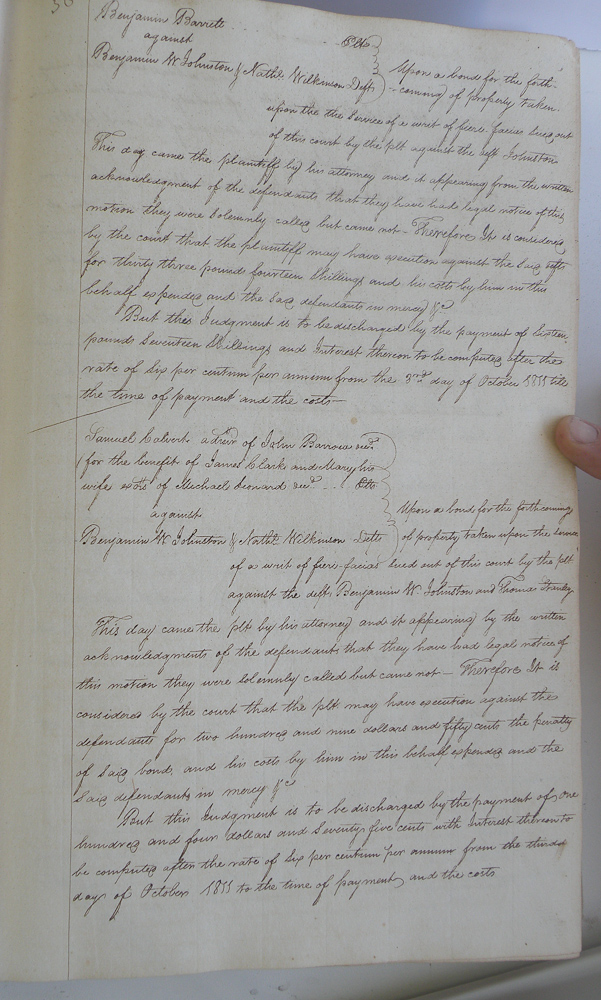 Benjamin Barrett Plt
against
Benjamin W Johnston & Nathl. Wilkinson Defts
Upon a bond for the forth-
-coming of property taken
upon the the service of a writ of fiere facias sued out
of this court by the plt against the deft Johnston
This day came the plaintiff by his attorney and it appearing from the written
acknowledgment of the defendants that they have had legal notice of this
motion they were solemnly called but came not - Therefore It is considered
by the court that the plaintiff may have execution against the said defts
for thirty three pound fourteen Shillings and his costs by him in this
behalf expended and the said defendants in mercy &c
But this Judgment is to be discharged by the payment of Sixteen
pounds Seventeen Shillings and Interest thereon to be computed after the
rate of Six per centum per annum from the 3rd day of October 1811 till
the time of payment and the costs -
Samuel Calvert of John Barrow decd.
for the benefit of James Clark and Mary his
wife exors. of Michael Leonard decd. Plts
against
Benjamin W Johnston & Nathl. Wilkinson Defts
Upon a bond for the forthcoming
of property taken upon the service
of a writ of fieri-facias sued out of this court by the plt
against the defts Benjamin W. Johnston and Thomas Stanley
This day came the plt by his attorney and it appearing by the written
acknowledgments of the defendants that they have had legal notice of
this motion they were solemnly called but came not - Therefore It is
considered by the court that the plt may have execution against the
defendants for two hundred and nine dollars and fifty cents the penalty
of said bond, and his costs by him in this behalf expended and the
said defendants in mercy &c
But this Judgment is to be discharged by the payment of one
hundred and four dollars and Seventy five cents with interest thereon to
be computed after the rate of Six per centum per annum from the third
day of October 1811 to the time of payment, and the costs